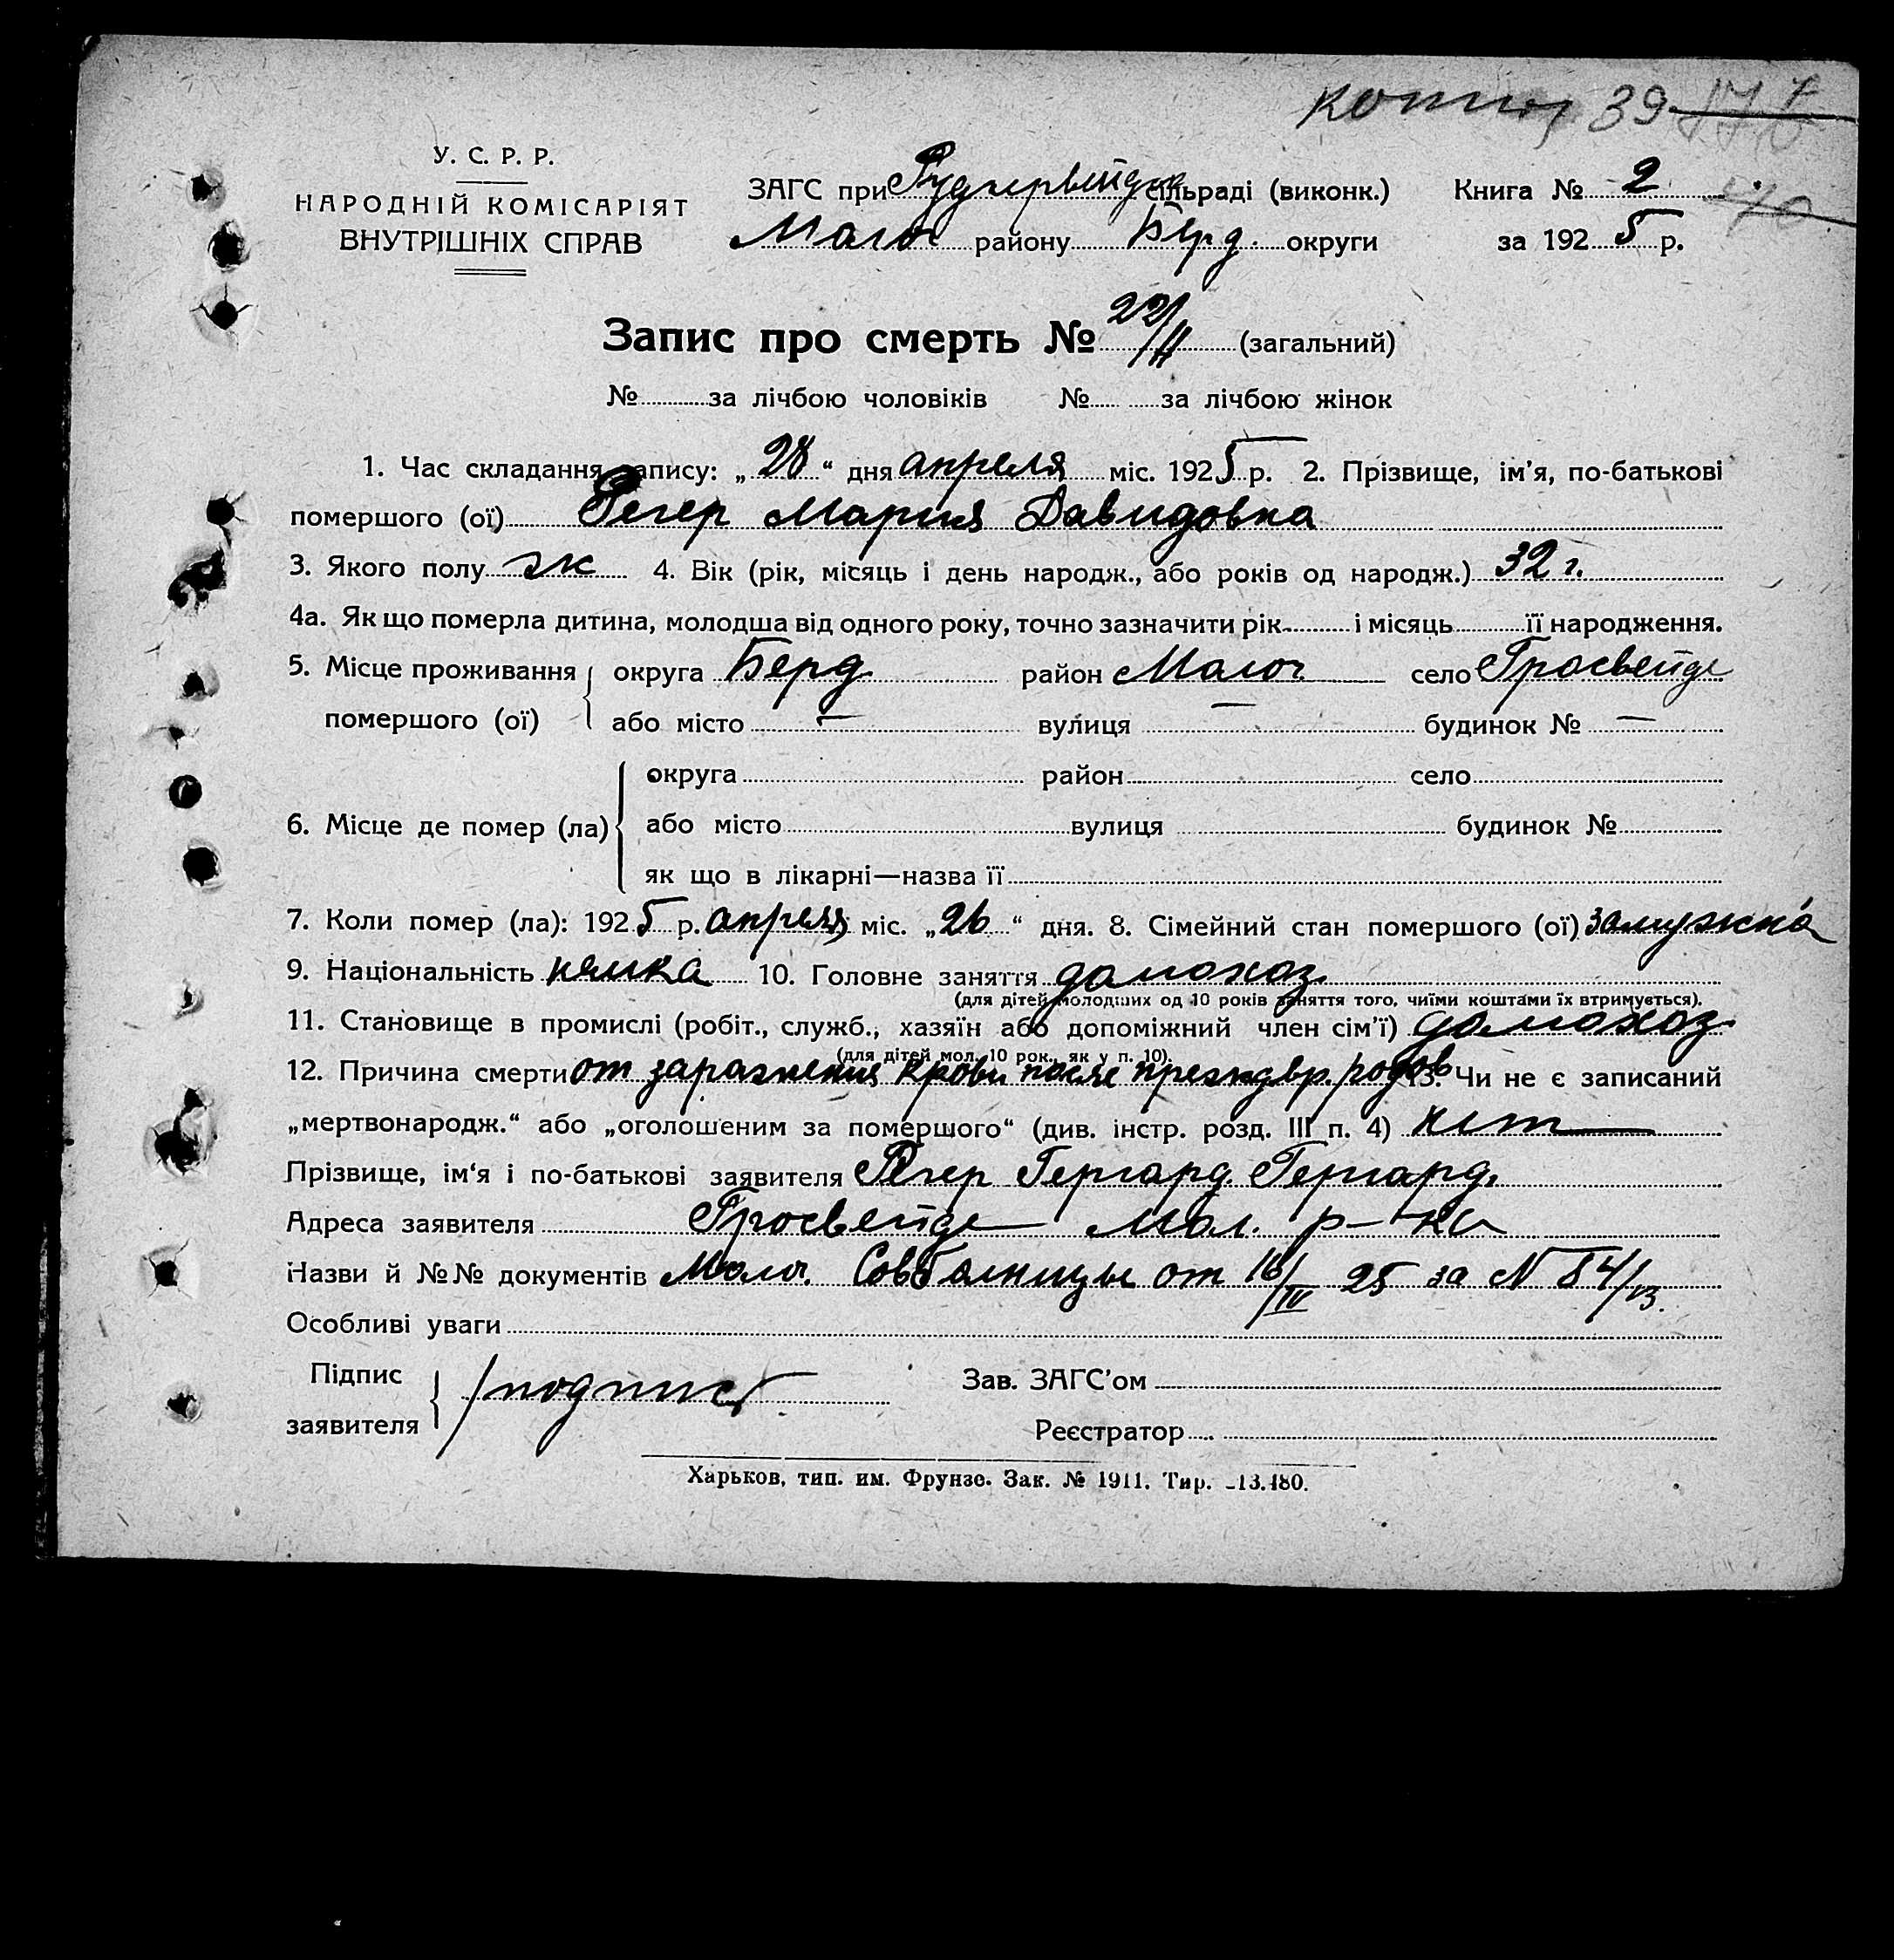 копия 39
У. С. Р. Р.
НАРОДНІЙ КОМІСАРІЯТ
ВНУТРІШНІХ СПРАВ
ЗАГС при Руднервейде сільраді (виконк.) Книга № 2
Молоч району Берд. округи за 1925 р.
Запис про смерть № 22/II (загальний)
№ за лічбою чоловіків № за лічбою жінок
1. Час складання запису: „28“ дня апреля міс. 1925 р. 2. Прізвище, ім'я, по-батькові
помершого (ої) Регер Мария Давидовна
3. Якого полу ж 4. Вік (рік, місяць і день народж., або років од народж.) 32 г.
4а. Як що померла дитина, молодша від одного року, точно зазначити рік і місяць її народження.
5. Місце проживання округа Берд район Молоч село Гросвейде
помершого (ої) або місто — вулиця — будинок № —
округа район село
6. Місце де помер (ла) або місто вулиця будинок №
як що в лікарні—назва її
7. Коли помер (ла): 1925 р. апреля міс. „26“ дня. 8. Сімейний стан помершого (ої) замужня
9. Національність немка 10. Головне заняття домохоз.
(для дітей молодших од 10 років заняття того, чиїми коштами їх втримується).
11. Становище в промислі (робіт., служб., хазяїн або допоміжний член сім'ї) домохоз.
(для дітей мол. 10 рок., як у п. 10).
12. Причина смерти от заражения крови после преждвр. родов 13. Чи не є записаний
„мертвонародж.“ або „оголошеним за помершого“ (див. інстр. розд. III п. 4) нет
Прізвище, ім'я і по-батькові заявителя Регер Гергард. Гергард.
Адреса заявителя Гросвейде Мол. р-на
Назви й №№ документів Молоч. Совболницы от 16/IV 25 за N 84/13.
Особливі уваги
Підпис
заявителя /подпись
Зав. ЗАГС'ом
Реєстратор
Харьков, тип. им. Фрунзе. Зак. № 1911. Тир. 13.480.